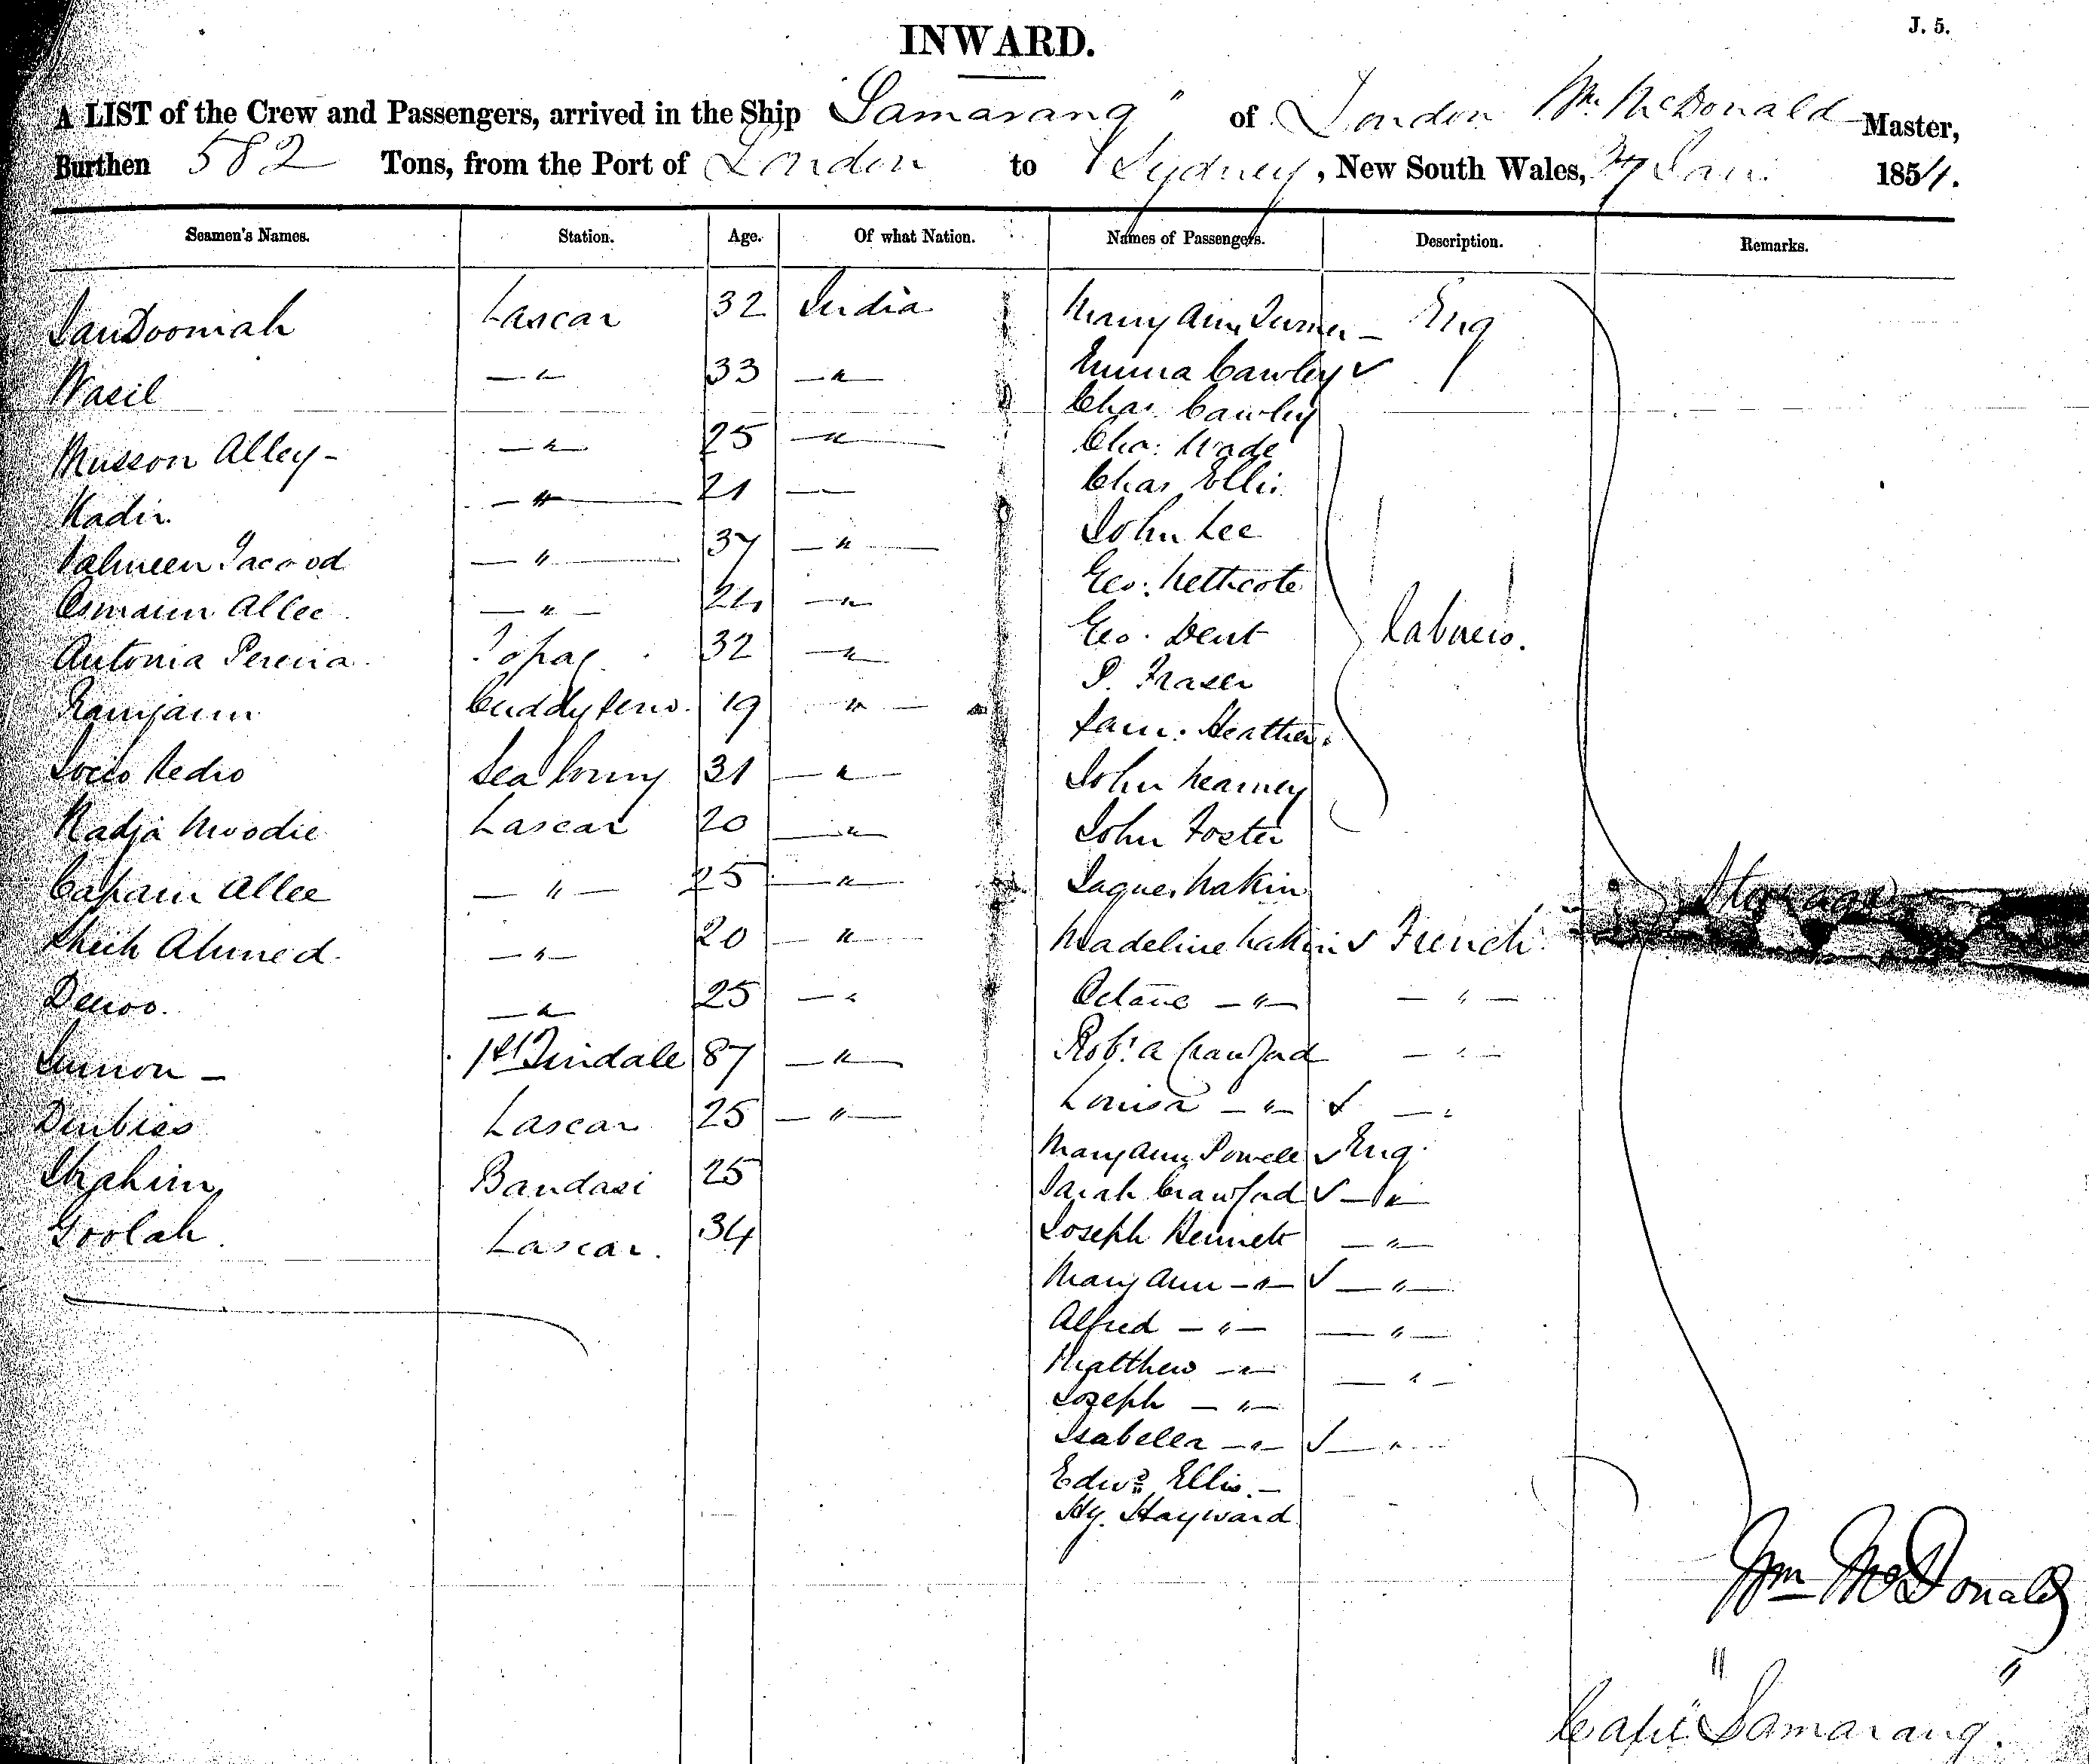 J. 5.
INWARD.
A LIST of the Crew and Passengers, arrived in the Ship "Samarang" of London Wm. McDonald Master,
Burthen 582 Tons, from the Port of London to Sydney, New South Wales, Jan. 1854.
Seamen's Names. Station. Age. Of what Nation. Names of Passengers. Description. Remarks.
Lascar 32 India Mary Ann Turner — Eng
Wazil — " — 33 — " — Emma Cawley ✓
Chas. Cawley
Musson Alley - — " — 25 — " — Cha: Wade
Kadir. — " — 21 — Chas Ellis
Yacood — " — 37 — " — John Lee
Osmann Allee — " — 24 — " — Geo: Nethcote
Antonia Pereira Topaz 32 — " — Geo. Dent Laborers.
Ramjann Cuddy serv. 19 — " — P. Fraser
Sam. Heather
Pedro Sea Cunny 31 — " — John Kearney
Kadja Moodie Lascar 20 — " — John Foster
Allee — " — 25 — " — Jaques Nakin Steerage
Sheik Ahmed. — " — 20 — " — Madeline Nakin ✓ French
— " — 25 — " — Octave — " — — " —
1st Tindale 37 — " — Robt. A Crawford — " —
Lascar 25 — " — Louisa — " — ✓ — "
Ibrahim Bandari 25 Mary Ann Powell ✓ Eng.
Goolah. Lascar. 34 Sarah Crawford ✓ — " —
Joseph Bennett — " —
Mary Ann — " — ✓ — " —
Alfred — " — — " —
Matthew — " — — " —
Joseph — " —
Isabella — " — ✓ — " —
Edwd. Ellis. —
Hy. Hayward
Wm McDonald
" "
Capt "Samarang"